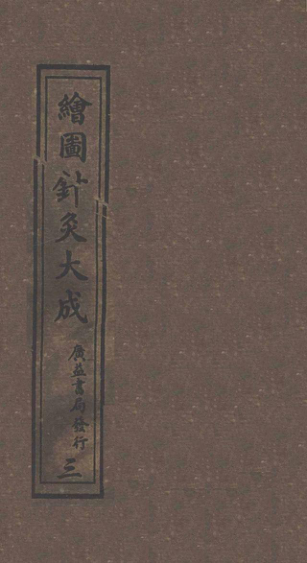 繪圖針灸大成
廣益書局發行
三